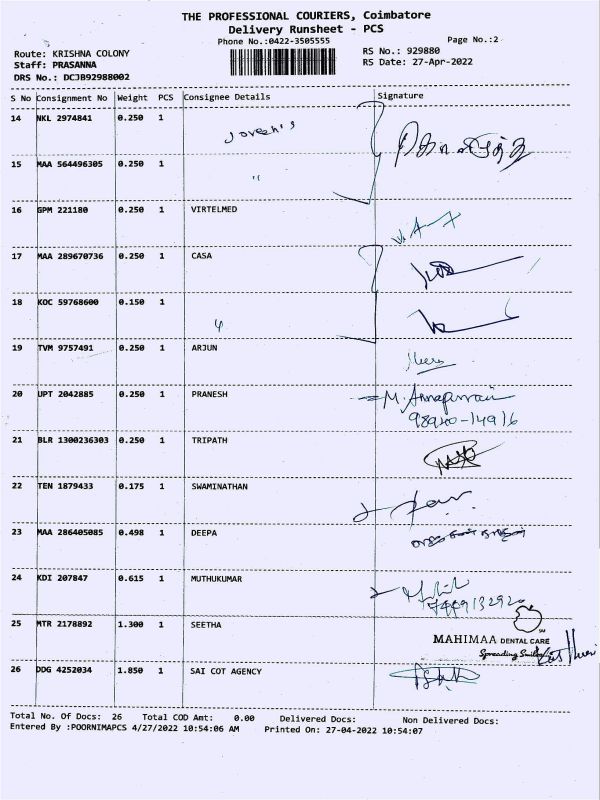 THE PROFESSIONAL COURIERS, Coimbatore
Delivery Runsheet - PCS
Phone No.:0422-3505555 Page No.:2
Route: KRISHNA COLONY RS No.: 929880
Staff: PRASANNA RS Date: 27-Apr-2022
DRS No.: DCJB92988002
S No Consignment No Weight PCS Consignee Details Signature
14 NKL 2974841 0.250 1
15 MAA 564496305 0.250 1 "
16 GPM 221180 0.250 1 VIRTELMED
17 MAA 289670736 0.250 1 CASA
18 KOC 59768600 0.150 1
19 TVM 9757491 0.250 1 ARJUN
20 UPT 2042885 0.250 1 PRANESH M.
98940-14916
21 BLR 1300236303 0.250 1 TRIPATH
22 TEN 1879433 0.175 1 SWAMINATHAN
23 MAA 286405085 0.498 1 DEEPA
24 KDI 207847 0.615 1 MUTHUKUMAR
25 MTR 2178892 1.300 1 SEETHA
MAHIMAA DENTAL CARE
Spreading Smiles
26 DDG 4252034 1.850 1 SAI COT AGENCY
Total No. Of Docs: 26 Total COD Amt: 0.00 Delivered Docs: Non Delivered Docs:
Entered By :POORNIMAPCS 4/27/2022 10:54:06 AM Printed On: 27-04-2022 10:54:07